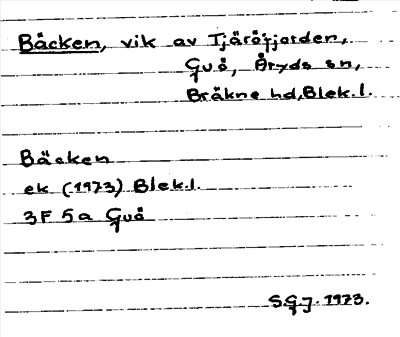 Bäcken, vik av Tjäröfjorden,
Guö, Åryds sn,
Bräkne hd, Blek.l.
Bäcken
ek (1973) Blek.l.
3F 5a Guö
S.G.J. 1973.